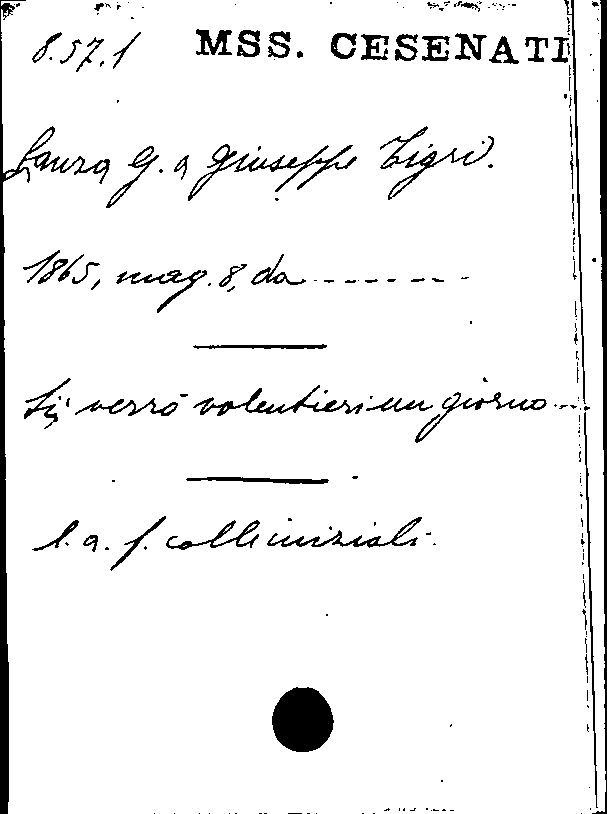 8.57.1 MSS. CESENATI
Laura G. a Giuseppe Tigri.
1865, mag. 8, da - - - - - - -
Sì, verrò volentieri un giorno - - -
l. a. f. colle iniziali.